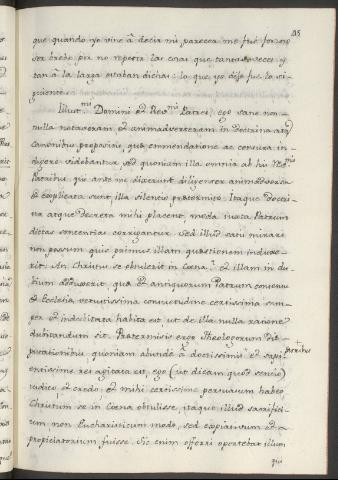 35
que quando yo vine à decir mi parecer me fué forzoso
ser brebe por no repetir las cosas que tantas veces y
tan à la larga estaban dichas: lo que yo dije fue lo si-
guiente:
Illust.mi Domini et Rev.mi Patres; ego sane non-
nulla notaveram et animadverteram in doctrina atq
canonibus propositis, quæ emmendatione ac censura in-
digere videbantur sed quoniam illa omnia ab his Rev.mis
Patribus, qui ante me dixerunt diligenter animadversa
et explicata sunt, illa silencio prætermitto. Itaque Doctri-
na atque Decreta mihi placent, modo iuxta Patrum
dictas sententias corrigantur. Sed illud satis mirari
non possum quis primus illam quæstionem induxe-
rit: An Christus se obtulerit in Cœna? et illam in du-
bium adduxerit, quæ et antiquorum Patrum consensu
et Ecclesia vetustissima consuetudine certissima sem-
per et indubitata habita est, ut de illa nulla ratione
dubitandum sit. Prætermissis ergo Theologorum Dis-
putationibus, quoniam abunde à doctissimis et sapi-
patribus
entissime res agitata est, ego (ut dicam quod sentio)
iudico et credo, et mihi certissime persuasum habeo,
Christum se in Cœna obtulisse, itaque illud sacrifici-
um non Eucharisticum modo, sed expiativum et
propiciatorium fuisse. Sic enim offerri oportebat illum
qui